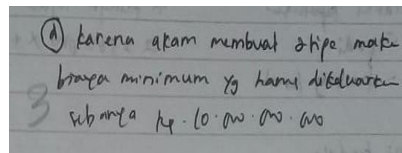 (d) karena akan membuat 2 tipe maka
biaya minimum yg harus dikeluarkan
3 sebanyak Rp. 10.000.000.000